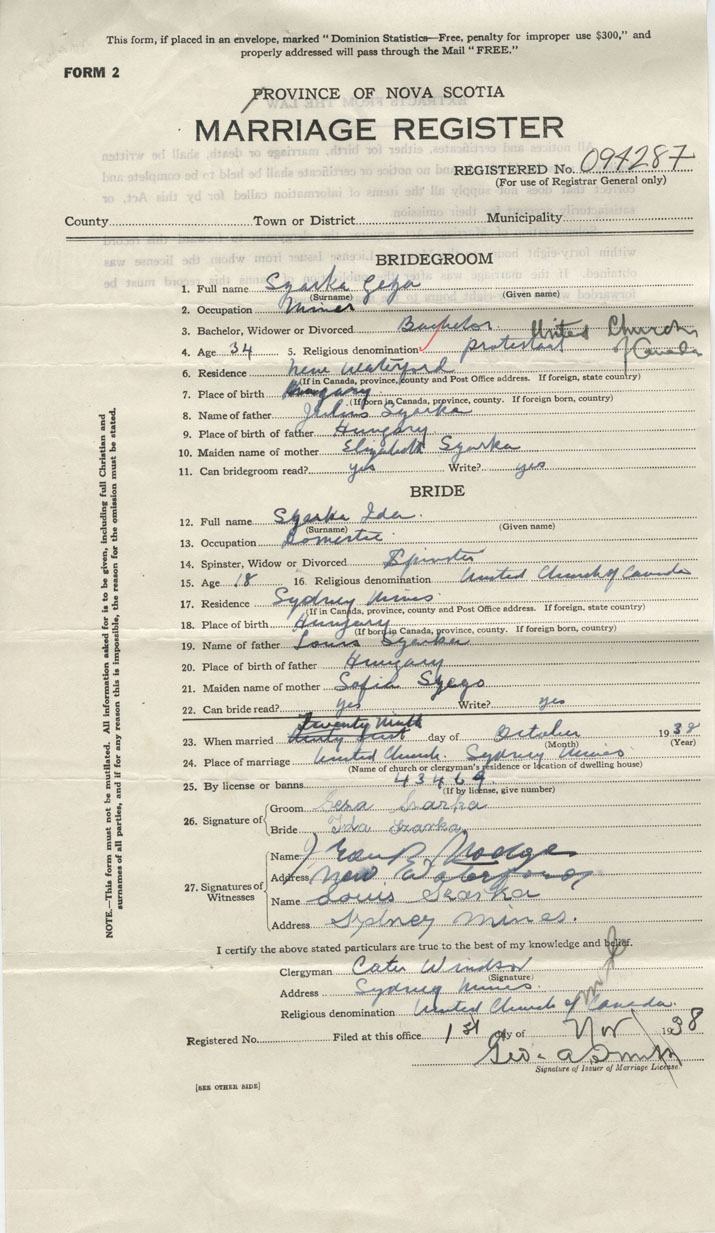 This form, if placed in an envelope, marked "Dominion Statistics—Free, penalty for improper use $300," and
properly addressed will pass through the Mail "FREE."
FORM 2
PROVINCE OF NOVA SCOTIA
MARRIAGE REGISTER
REGISTERED No. 094287
(For use of Registrar General only)
County Town or District Municipality
BRIDEGROOM
1. Full name Szarka Geza
(Surname) (Given name)
2. Occupation Miner
3. Bachelor, Widower or Divorced Bachelor United Church
4. Age 34 5. Religious denomination protestant of Canada
6. Residence New Waterford
(If in Canada, province, county and Post Office address. If foreign, state country)
7. Place of birth Hungary
(If born in Canada, province, county. If foreign born, country)
8. Name of father Julius Szarka
9. Place of birth of father Hungary
10. Maiden name of mother Elizabeth Szarka
11. Can bridegroom read? yes Write? yes
BRIDE
12. Full name Szarka Ida
(Surname) (Given name)
13. Occupation Domestic
14. Spinster, Widow or Divorced Spinster
15. Age 18 16. Religious denomination United Church of Canada
17. Residence Sydney Mines
(If in Canada, province, county and Post Office address. If foreign, state country)
18. Place of birth Hungary
(If born in Canada, province, county. If foreign born, country)
19. Name of father Louis Szarka
20. Place of birth of father Hungary
21. Maiden name of mother Sofia Szego
22. Can bride read? yes Write? yes
Twenty Ninth
23. When married day of October 1938
(Month) (Year)
24. Place of marriage United Church. Sydney Mines
(Name of church or clergyman's residence or location of dwelling house)
25. By license or banns 43469
(If by license, give number)
26. Signature of
Groom Geza Szarka
Bride Ida Szarka
27. Signatures of Witnesses
Name
Address New Waterford
Name Louis Szarka
Address Sydney Mines.
I certify the above stated particulars are true to the best of my knowledge and belief.
Clergyman Cater Windsor
(Signature)
Address Sydney Mines.
Religious denomination United Church of Canada.
Registered No. Filed at this office 1st day of Nov 1938
Geo. A Smith
Signature of Issuer of Marriage License.
[SEE OTHER SIDE]
NOTE.—This form must not be mutilated. All information asked for is to be given, including full Christian and
surnames of all parties, and if for any reason this is impossible, the reason for the omission must be stated.